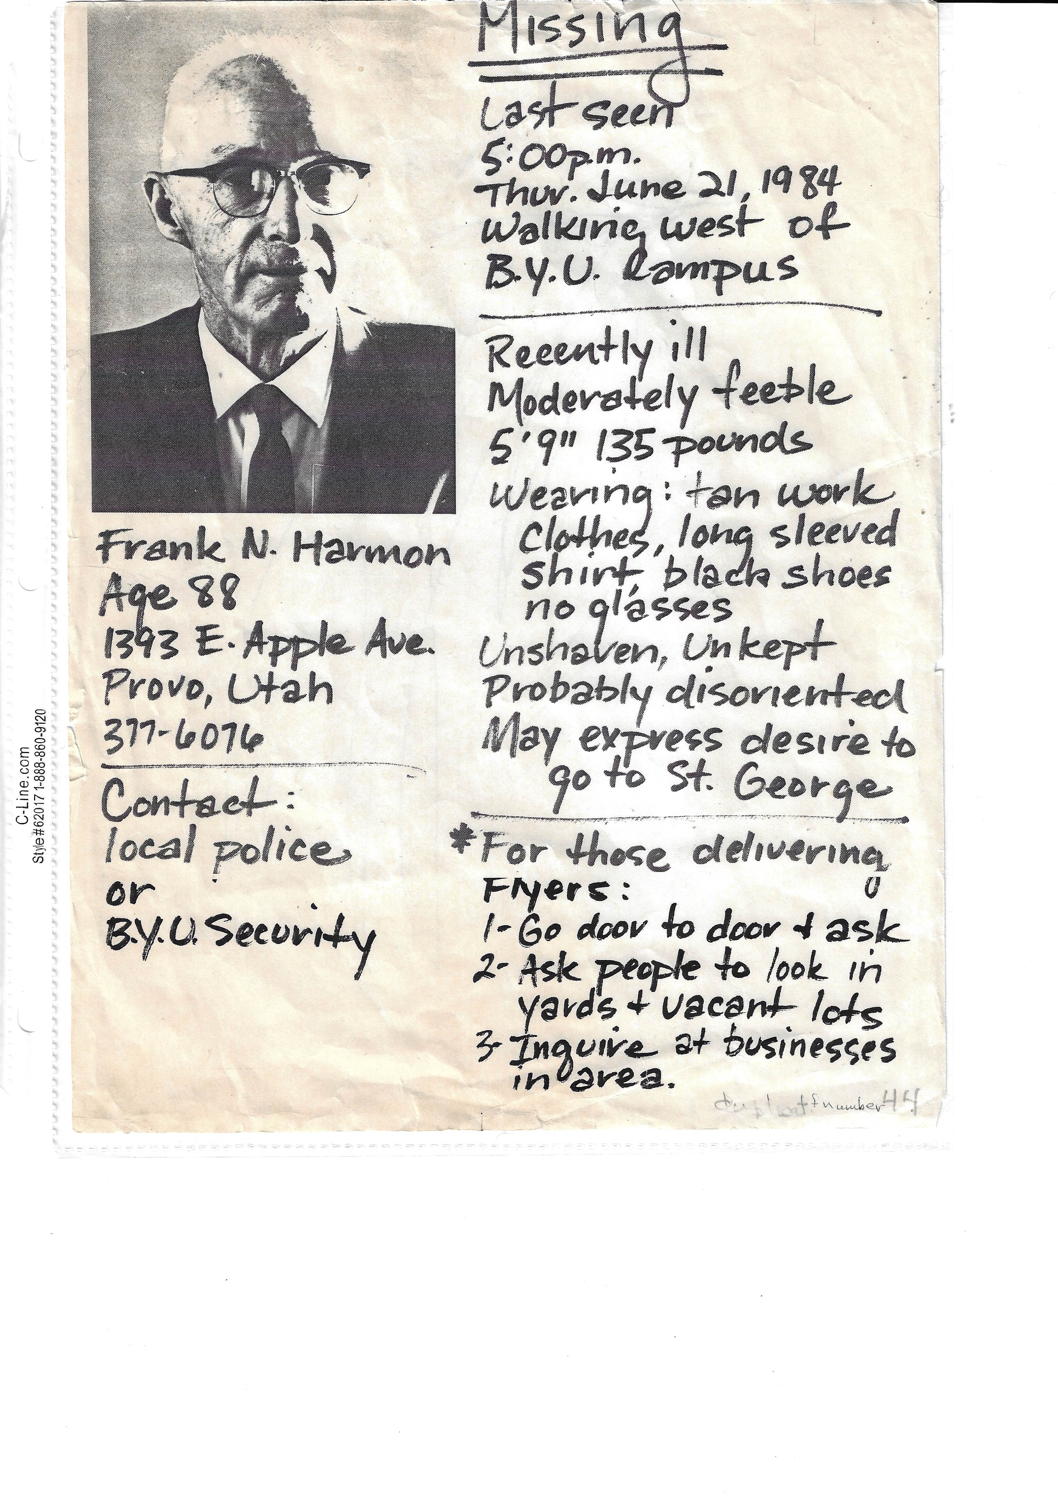 Missing
Last seen
5:00p.m.
Thur. June 21, 1984
Walking west of
B.Y.U. Campus
Recently ill
Moderately feeble
5'9" 135 pounds
Wearing: tan work
Clothes, long sleeved
shirt, black shoes
no glasses
Unshaven, Unkept
Probably disoriented
May express desire to
go to St. George
*For those delivering
Flyers:
1- Go door to door + ask
2- Ask people to look in
yards + vacant lots
3- Inquire at businesses
in area.
number 44
Frank N. Harmon
Age 88
1393 E. Apple Ave.
Provo, Utah
377-6076
Contact:
local police
or
B.Y.U. Security
C-Line.com
Style#62017 1-888-860-9120